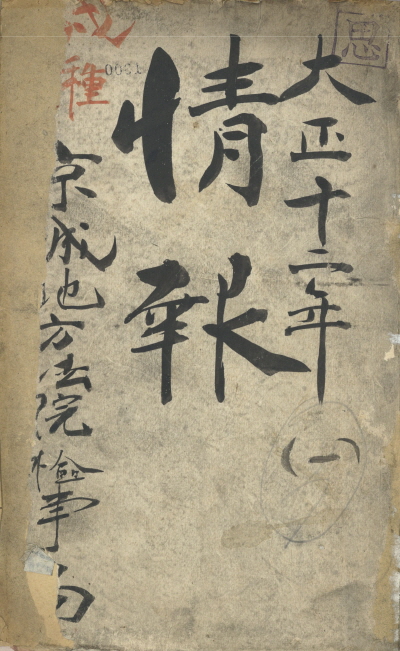 思
大正十二年
(一)
情報
種
京城地方法院検事局